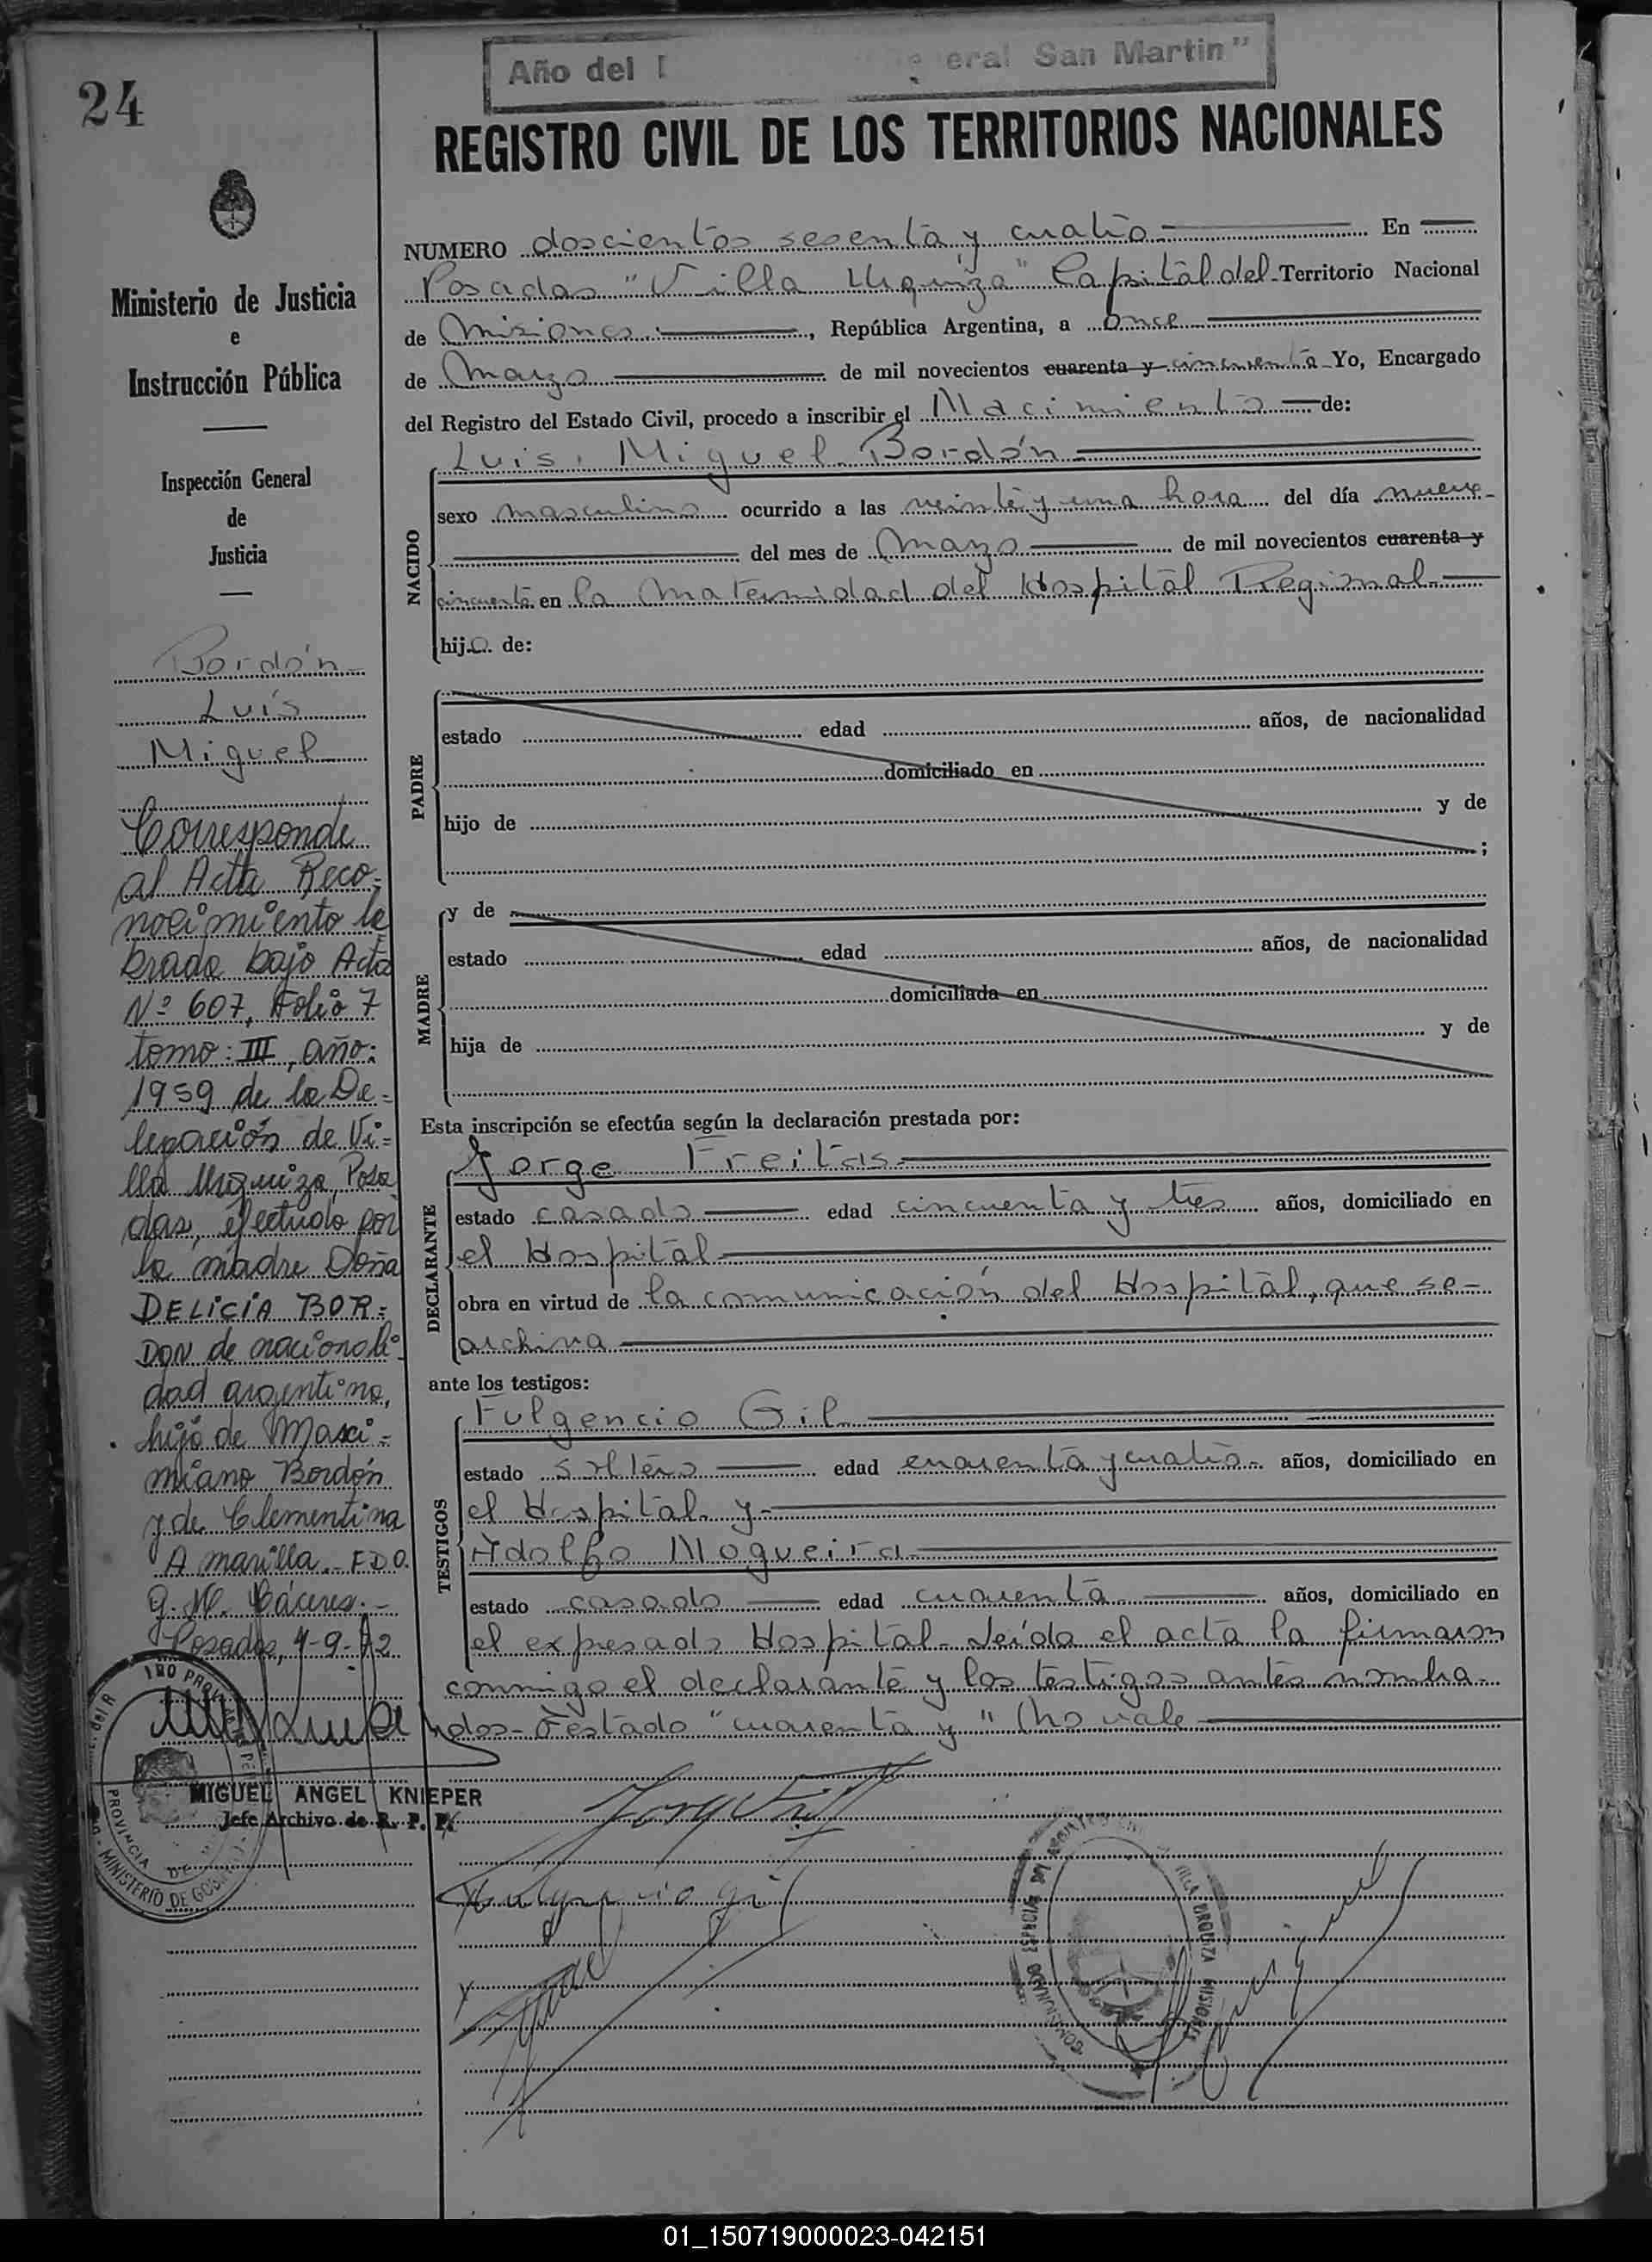 24
Año del eral San Martin"
REGISTRO CIVIL DE LOS TERRITORIOS NACIONALES
Ministerio de Justicia
e
Instrucción Pública
Inspección General
de
Justicia
Bordón
Luis
Miguel
Corresponde
al Acta Reco=
nocimiento la
brada bajo Acta
Nº 607, Folio 7
tomo: III, año:
1959 de la De=
legación de Vi=
lla Urquiza, Posa
das, efectuado por
la madre Doña
DELICIA BOR=
DON de nacionali
dad argentina,
hija de Maxi=
miano Bordón
y de Clementina
Amarilla.- FDO.
G. N. Cáceres.-
Posadas, 4-9-72
MIGUEL ANGEL KNIEPER
Jefe Archivo de R. P. P.
PROVINCIA DE
MINISTERIO DE GOB
NUMERO doscientos sesenta y cuatro En
Posadas "Villa Urquiza" Capital del Territorio Nacional
de Misiones, República Argentina, a once
de Marzo de mil novecientos cuarenta y cincuenta Yo, Encargado
del Registro del Estado Civil, procedo a inscribir el Nacimiento de:
Luis Miguel Bordón
NACIDO
sexo masculino ocurrido a las veinte y una hora del día nueve
del mes de Marzo de mil novecientos cuarenta y
cincuenta en la Maternidad del Hospital Regional
hijo de:
PADRE
estado edad años, de nacionalidad
domiciliado en
hijo de y de
;
MADRE
y de
estado edad años, de nacionalidad
domiciliada en
hija de y de
Esta inscripción se efectúa según la declaración prestada por:
DECLARANTE
Jorge Freitas
estado casado edad cincuenta y tres años, domiciliado en
el Hospital
obra en virtud de la comunicación del Hospital, que se
archiva
ante los testigos:
TESTIGOS
Fulgencio Gil
estado soltero edad cuarenta y cuatro años, domiciliado en
el Hospital y
Adolfo Nogueira
estado casado edad cuarenta años, domiciliado en
el expresado Hospital. Leída el acta la firmaron
conmigo el declarante y los testigos antes nombra-
dos- Testado "cuarenta y" no vale
Fulgencio Gil
URQUIZA MISIONES
01_150719000023-042151